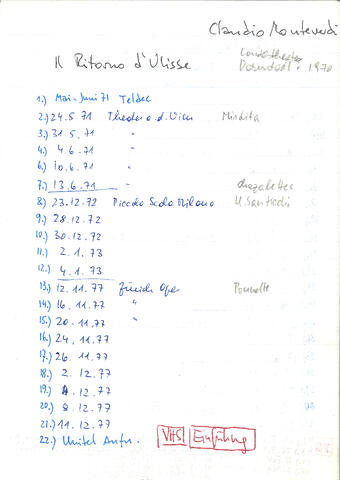 Claudio Monteverdi
1970
Il Ritorno d'Ulisse
1.) Mai-Juni 71 Teldec
2.) 24.5.71 Theater a.d. Wien
3.) 31.5.71 "
4.) 4.6.71 "
6.) 10.6.71 "
7.) 13.6.71 "
8.) 23.12.72 Piccola Scala Milano
9.) 28.12.72
10.) 30.12.72
11.) 2.1.73
12.) 4.1.73
13.) 12.11.77 Zürich Oper Ponnelle
14.) 16.11.77 "
15.) 20.11.77 "
16.) 24.11.77
17.) 26.11.77
18.) 2.12.77
19.) 4.12.77
20.) 8.12.77
21.) 11.12.77
22.) Unitel Aufn. VHS Einführung